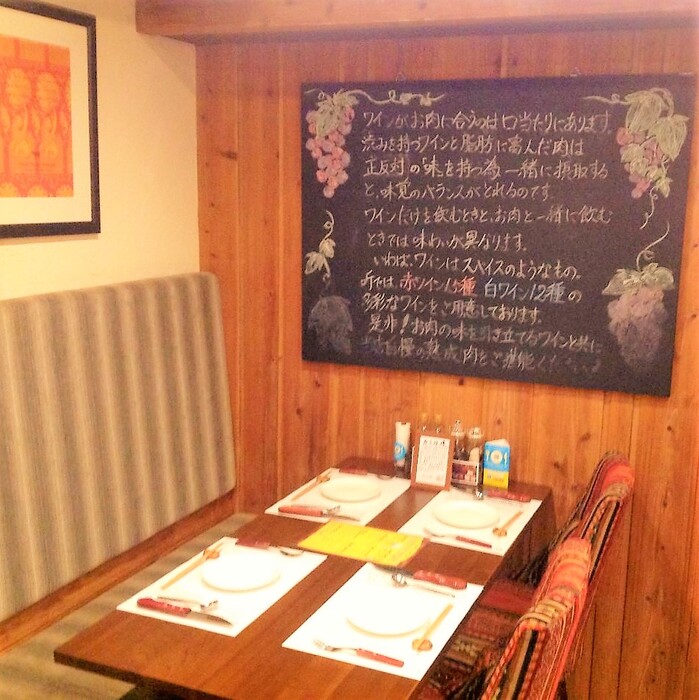 ワインがお肉に合うのは口当たりにあります。
渋みを持つワインと脂肪に富んだ肉は
正反対の味を持つ為一緒に摂取する
と、味覚のバランスがとれるのです。
ワインだけを飲むときと、お肉と一緒に飲む
ときでは味わいが異なります。
いわば、ワインはスパイスのようなもの。
所では、赤ワイン15種 白ワイン12種の
多彩なワインをご用意しております。
是非！お肉の味を引き立てるワインと共に
自慢の熟成肉とご堪能ください